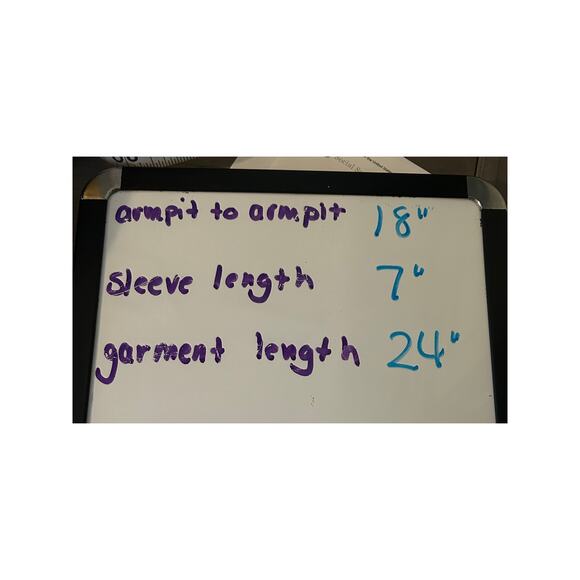 Social S
armpit to armpit 18"
sleeve length 7"
garment length 24"